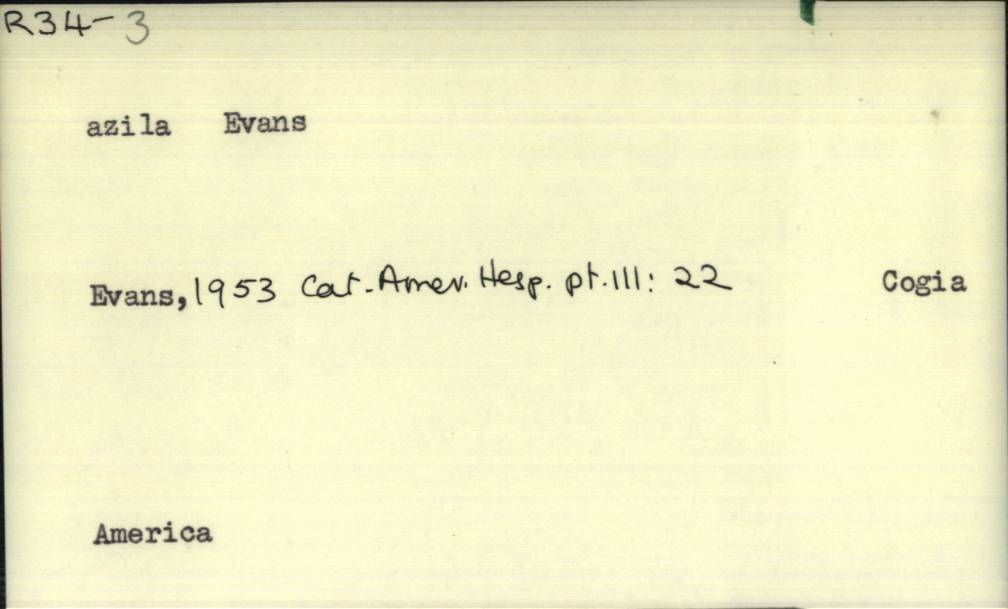 R34-3
azila Evans
Evans, 1953 Cat. Amer. Hesp. pt. III: 22 Cogia
America